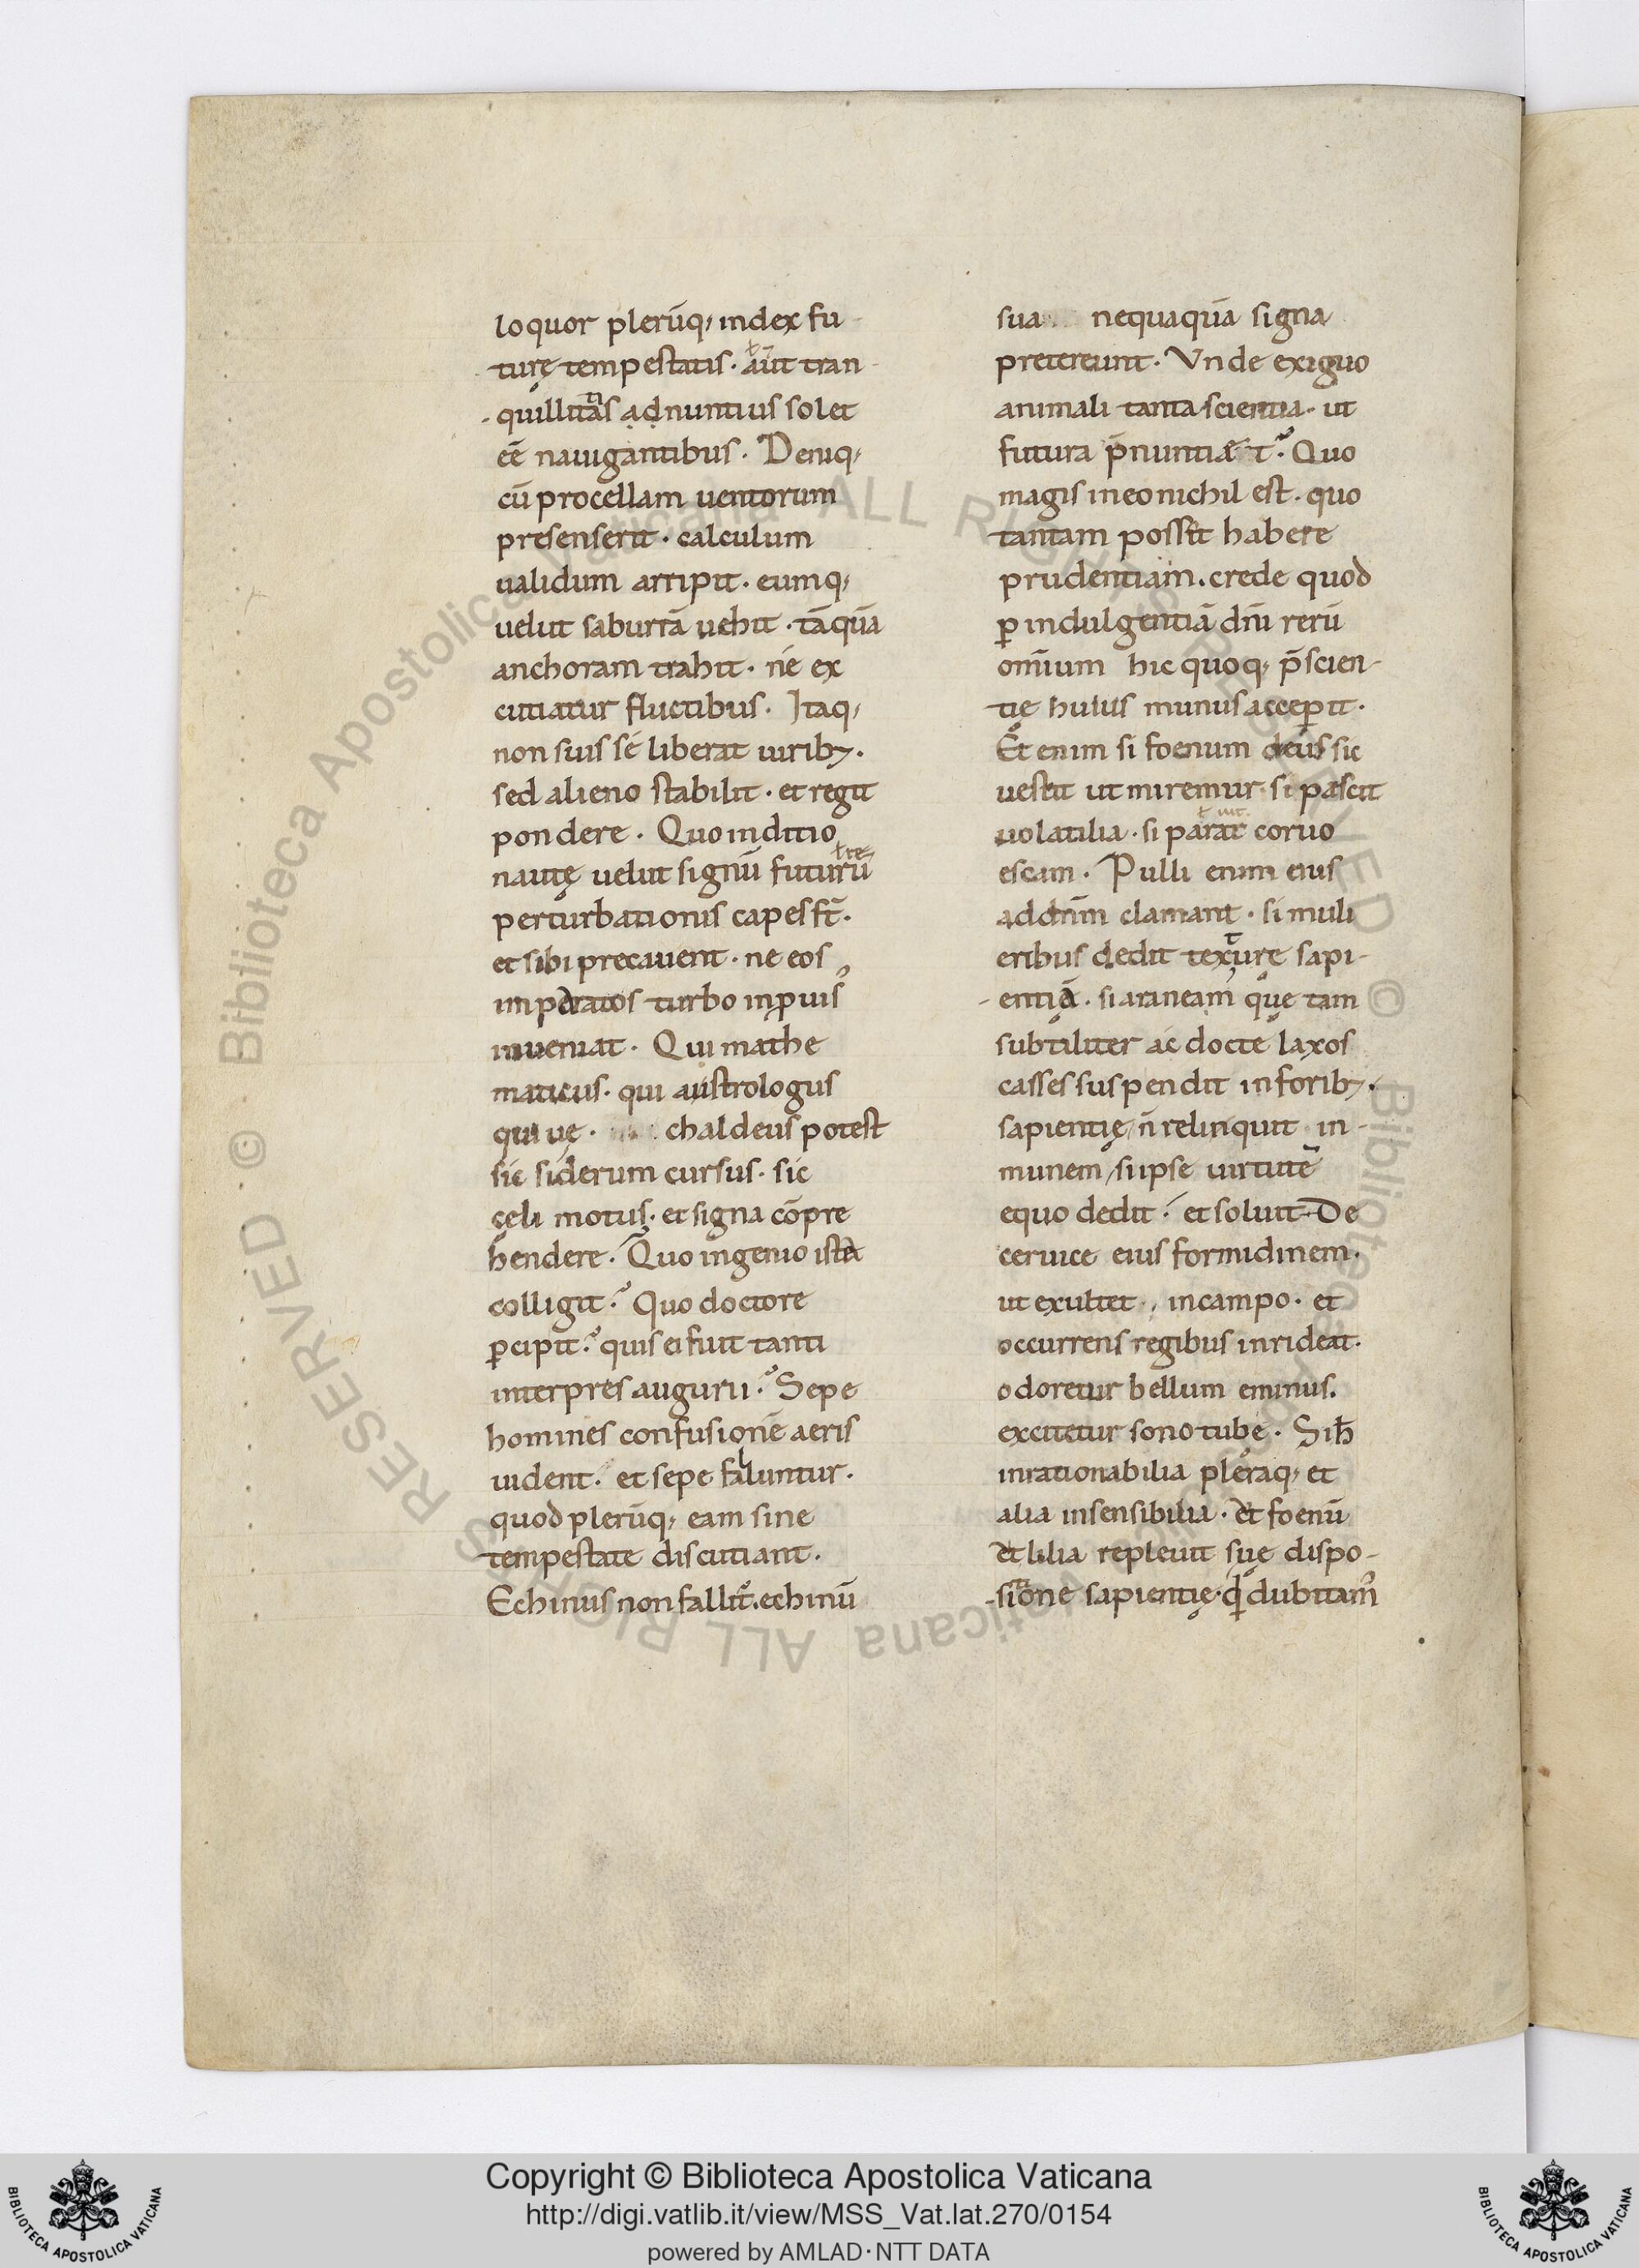 loquor plerūq; index fu
turę tempestatis· aut tran
quillitatis adnuntius solet
eē nauigantibus. Deniq;
cū procellam uentorum
presenserit· calculum
ualidum arripit· eumq;
uelut saburrā uehit· tāquā
anchoram trahit· ne ex
cutiatur fluctibus. Itaq;
non suis se liberat uirib;.
sed alieno stabilit· et regit
pondere. Quo inditio
nautę uelut signū futurū
perturbationis capesst̄.
et sibi precauent· ne eos
turbo inpuis
inueniat. Qui mathe
maticus· qui austrologus
qui uę· chaldeus potest
sic siderum cursus· sic
cęli motus· et signa cōpre
hendere. Quo ingenio ista
colligit? Quo doctore
ꝑcipit? quis ei fuit tanti
interpres augurii? Sepe
homines confusionē aeris
uident· et sepe falluntur.
quod plerūq; eam sine
tempestate discutiant.
Echinus non fallit̄· echinū
sua nequaquā signa
pretereunt. Vnde exiguo
animali tanta scientia· ut
futura p̄nuntiet? Quo
magis in eo nichil est· quo
tantam possit habere
prudentiam· crede quod
ꝑ indulgentiā dn̄i rerū
omīum hic quoq; p̄scien-
tię huius munus acceꝑit.
Et enim si foenum deus sic
uestit ut miremur· si pascit
uolatilia· si parat coruo
escam. Pulli enim eius
ad dn̄m clamant· si muli
eribus dedit texturę sapi-
entiā· si araneam que tam
subtiliter ac docte laxos
casses suspendit in forib;·
sapientię n̄ relinquit in-
munem, si ipse uirtutē
equo dedit· et soluit De
ceruice eius formidinem.
ut exultet in campo· et
occurrens regibus inrideat.
odoretur bellum eminus.
excitetur sono tube. Si h̄
inrationabilia pleraq; et
alia insensibilia· et foenū
et lilia repleuit suę dispo-
sitione sapientię· qd dubitam᾿